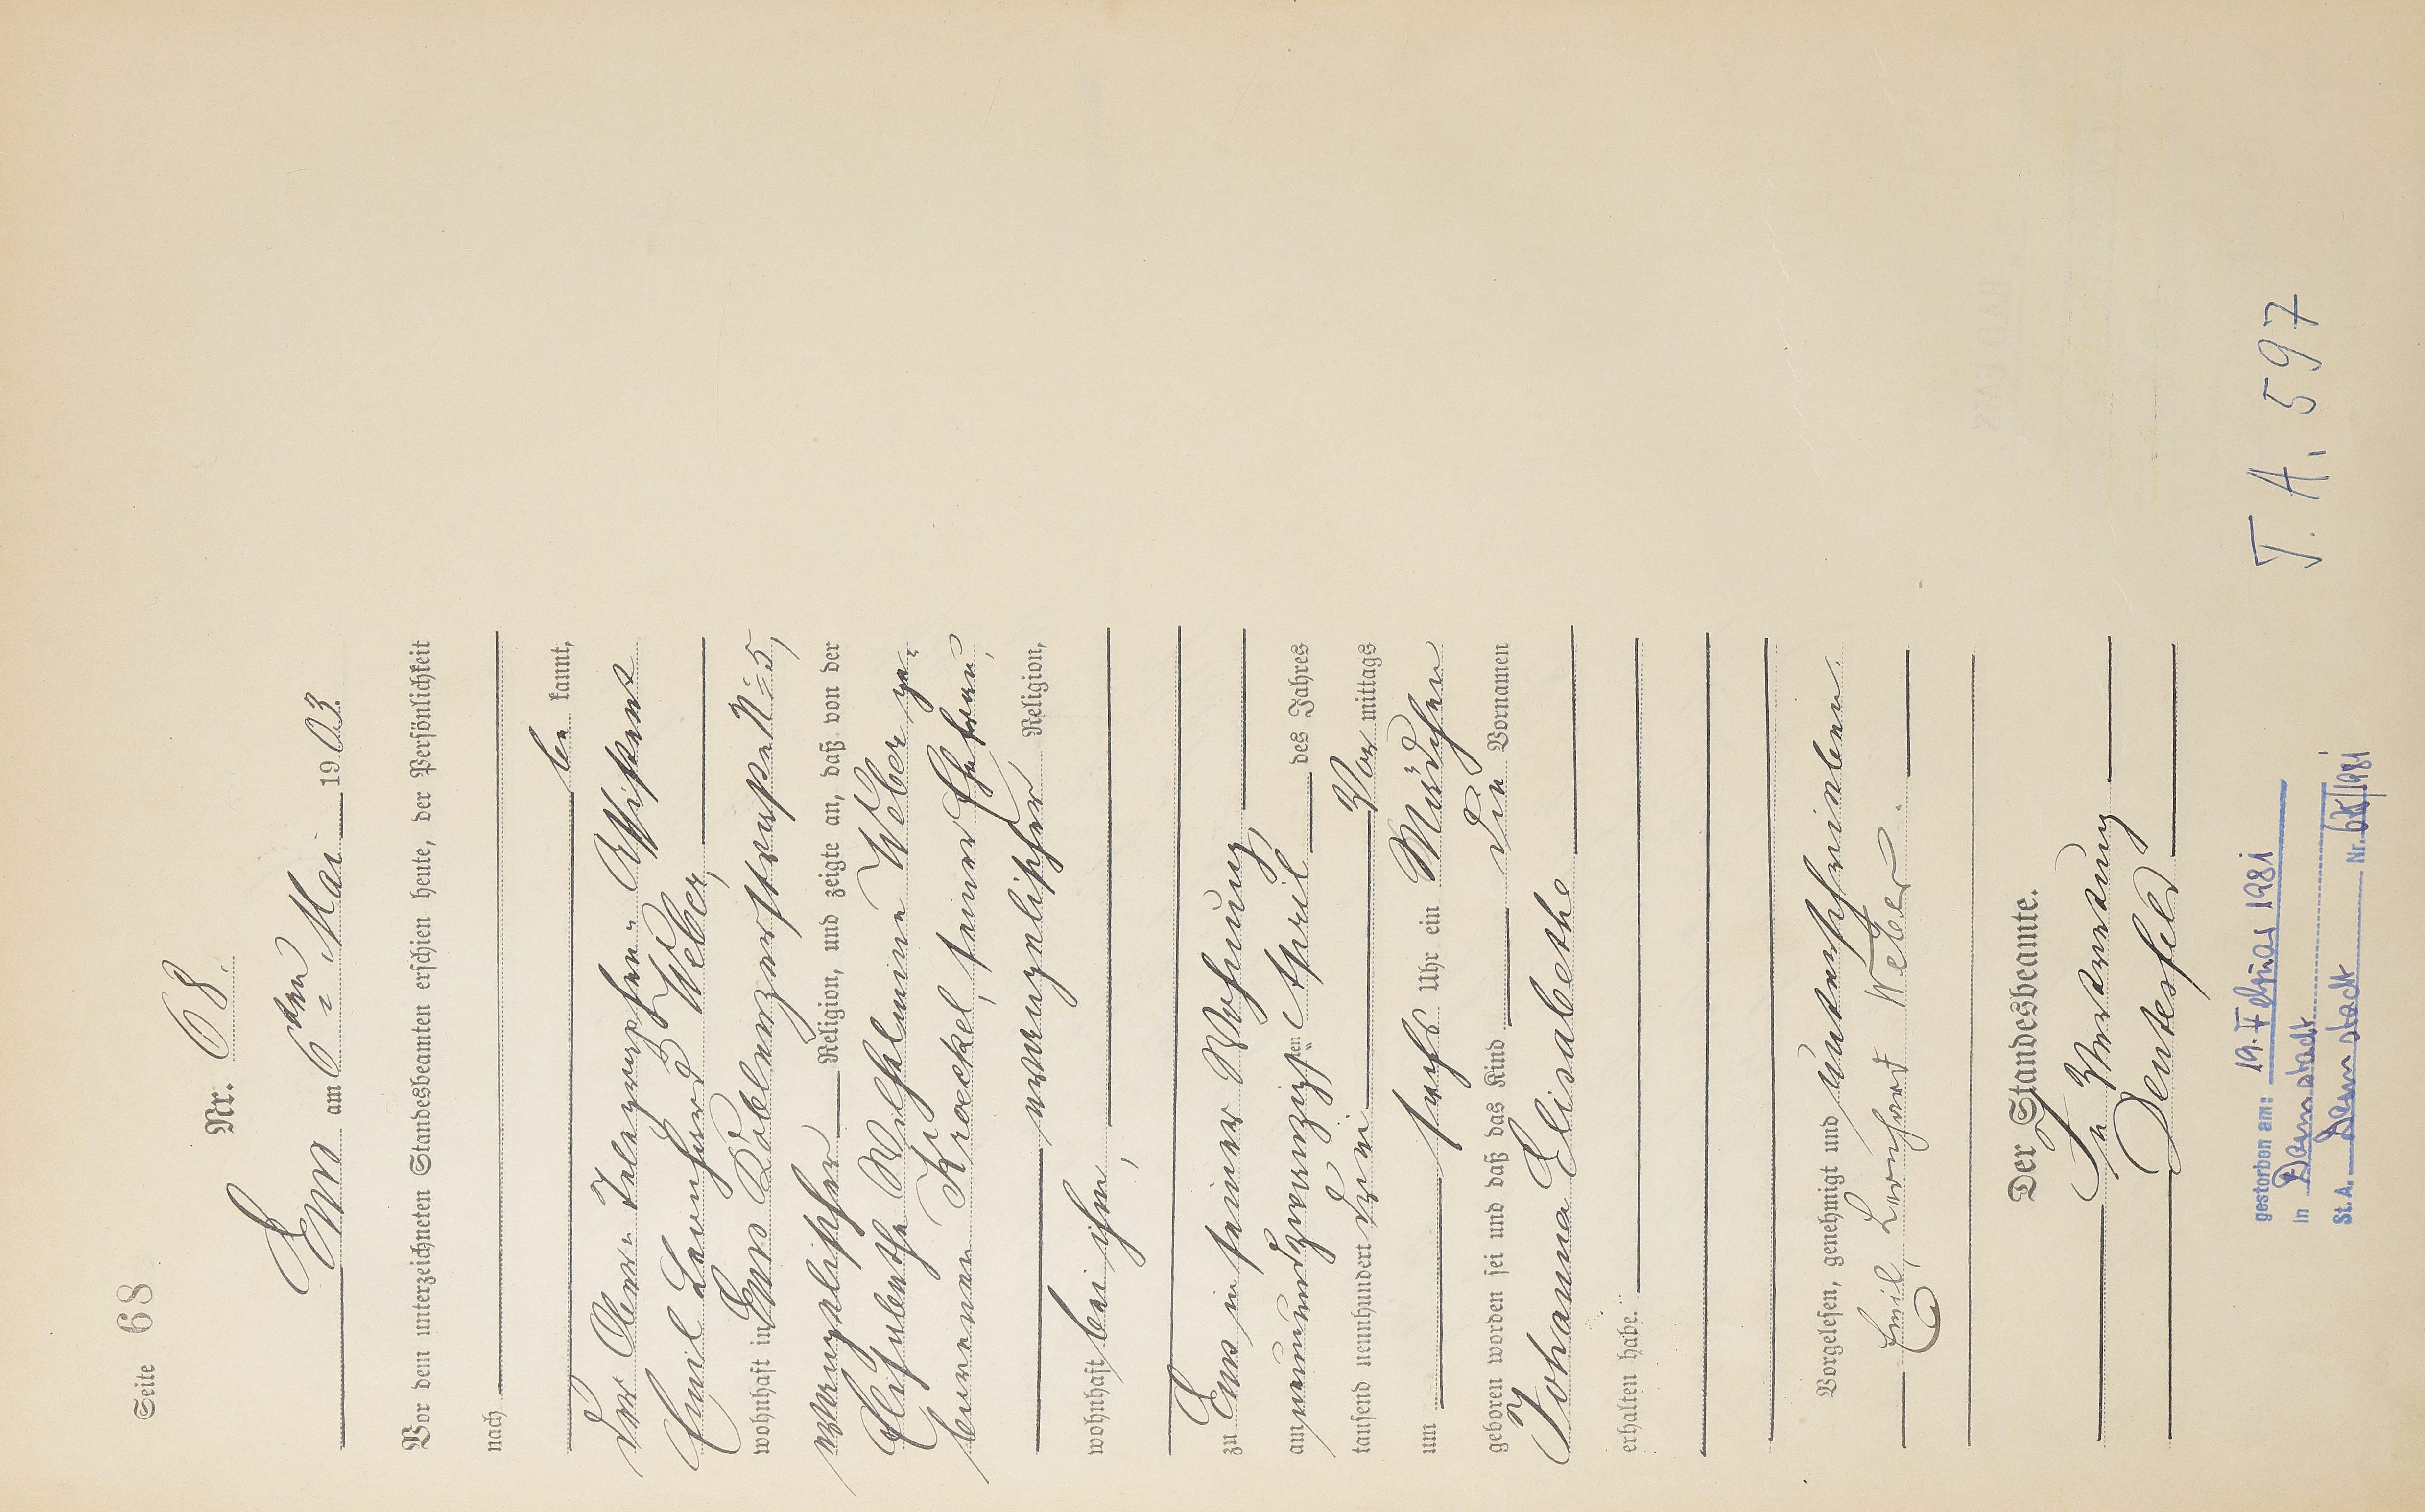 Seite 68
Nr. 68.
Ems am 6ten Mai 1903.
Vor dem unterzeichneten Standesbeamten erschien heute, der Persönlichkeit
nach
be kannt,
der Ober-Telegraphen-Assistent
Emil Leonhard Weber,
wohnhaft in Ems Coblenzerstrasse No 5,
evangelischer Religion, und zeigte an, daß von der
Elisabethe Wilhelmine Weber ge-
borenen Kraeckel, seiner Ehefrau,
evangelischer Religion,
wohnhaft bei ihm,
zu Ems in seiner Wohnung
am neunundzwanzigsten April des Jahres
tausend neunhundert drei Vor mittags
um sechs Uhr ein Mädchen
geboren worden sei und daß das Kind die Vornamen
Johanna Elisabethe
erhalten habe.
Vorgelesen, genehmigt und unterschrieben.
Emil Leonhard Weber.
Der Standesbeamte.
In Vertretung
gestorben am: 19. Februar 1981
in Darmstadt
St. A. Darmstadt Nr. /1981
T. A. 597